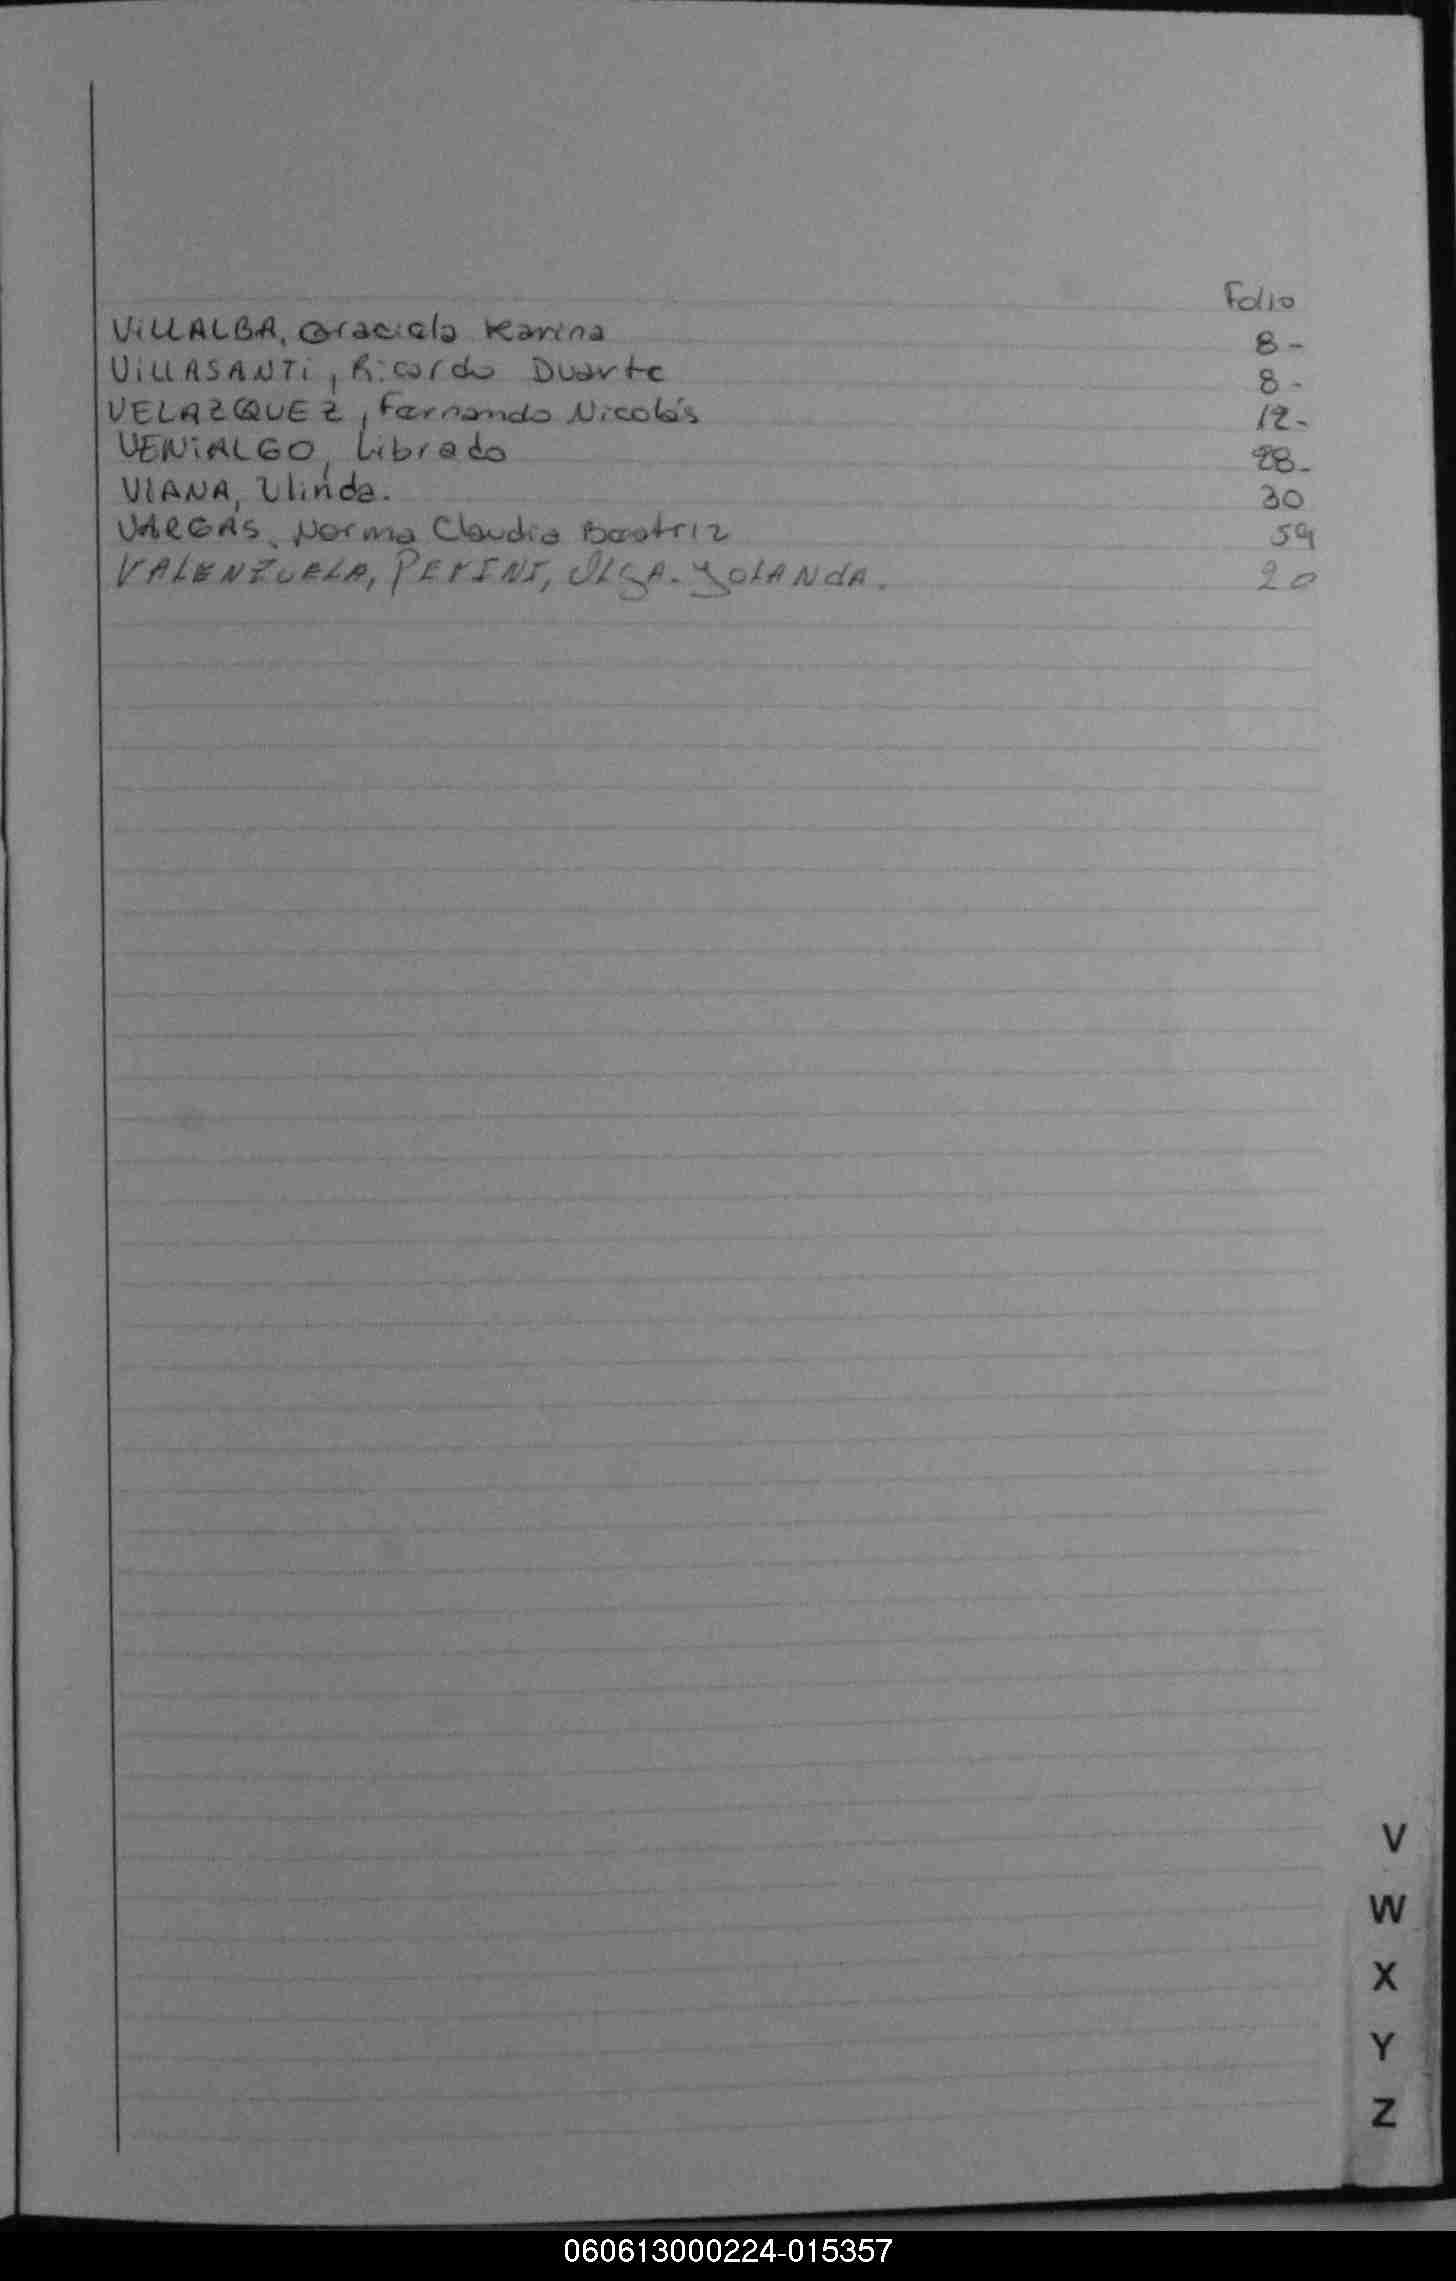 Folio
ViLLALBA, Graciela Karina 8-
ViLLASANTi, Ricardo Duarte 8-
VELAZQUEZ, Fernando Nicolás 12-
VENiALGO, Librado 28-
VIANA, Ulinda. 30
VARGAS, Norma Claudia Beatriz 59
VALENZUELA, PERINI, OLGA. YOLANDA. 20
V
W
X
Y
Z
060613000224-015357